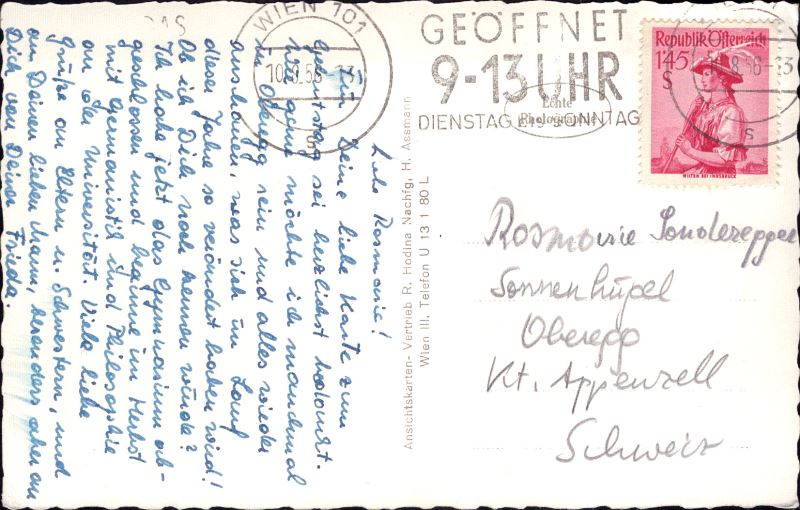 WIEN 101
10.8.56-13
S
GEÖFFNET
9-13 UHR
DIENSTAG BIS SONNTAG
Echte
Photographie
Republik Österreich
1'45
S
WILTEN BEI INNSBRUCK
8.56-13
S
Liebe Rosmarie!
Für Deine liebe Karte zum
Geburtstag sei herzlichst bedankt.
Wie gerne möchte ich manchmal
in Oberegg sein und alles wieder
anschauen, was sich im Lauf
der Jahre so verändert haben wird!
Ob ich Dich noch kennen würde?
Ich habe jetzt das Gymnasium ab-
geschlossen und beginne im Herbst
mit Germanistik und Philosophie
an der Universität. Viele liebe
Grüße an Eltern u. Schwestern, und
an Deinen lieben Mann, besonders aber an
Dich von Deiner Frieda.
Ansichtskarten-Vertrieb R. Hodina Nachfg. H. Assmann
Wien III. Telefon U 13 1 80 L
Rosmarie Sonderegger
Sonnenhügel
Oberegg
Kt. Appenzell
Schweiz